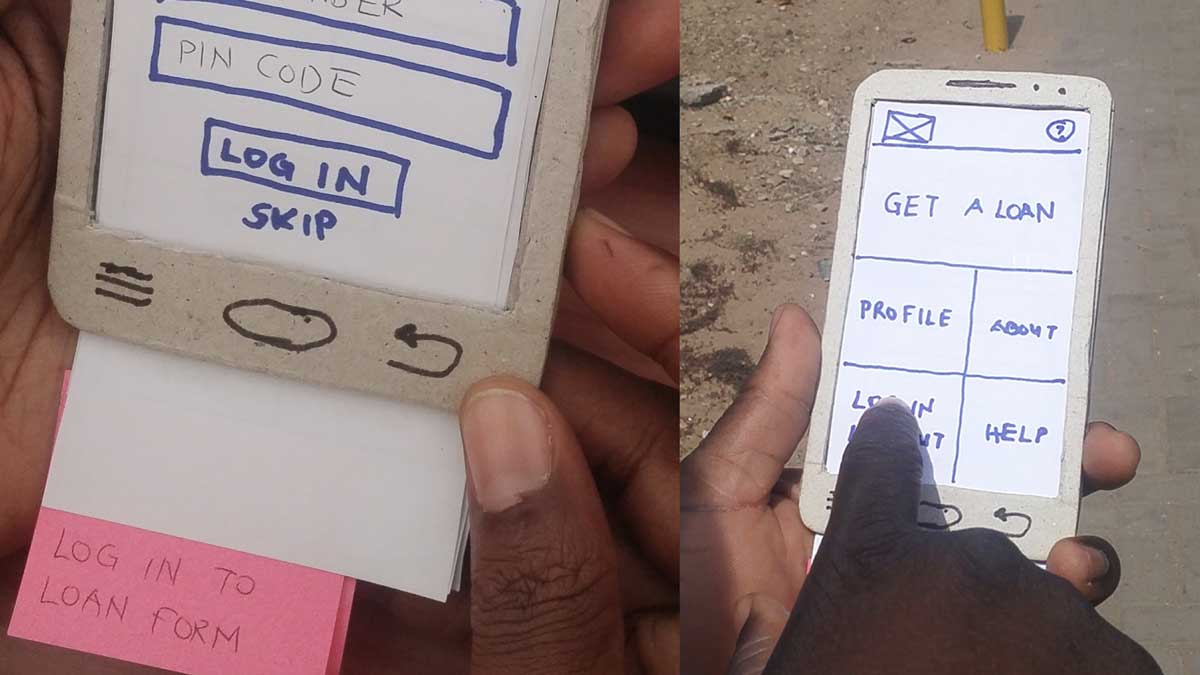 PIN CODE
LOG IN
SKIP
LOG IN TO
LOAN FORM
?
GET A LOAN
PROFILE
ABOUT
HELP